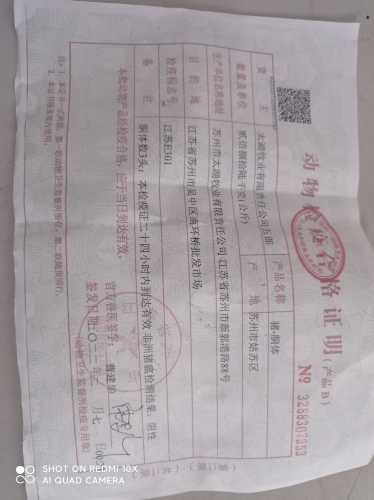 动物检疫合格证明(产品B)
№ 3288307353
货主 太湖牧业有限责任公司五部 产品名称 猪-胴体
数量及单位 贰佰捌拾陆千克(公斤) 产地 苏州市姑苏区
生产单位名称地址 苏州市太湖牧业有限责任公司 江苏省苏州市新郭港路88号
目的地 江苏省苏州市吴中区南环桥批发市场
检疫标志号 江苏E301
备注 胴体数3头; 本检疫证二十四小时内到达有效 非洲猪瘟检测结果: 阴性
本批动物产品经检疫合格, 应于当日到达有效。
官方兽医签字: 曹建
签发日期:二〇二二年 月七日
(动物卫生监督所检疫专用章)
注: 1. 本证书一式两联, 第一联动物卫生监督所留存, 第二联随货同行。
2. 本证书限省境内使用。
SHOT ON REDMI 10X
AI QUAD CAMERA